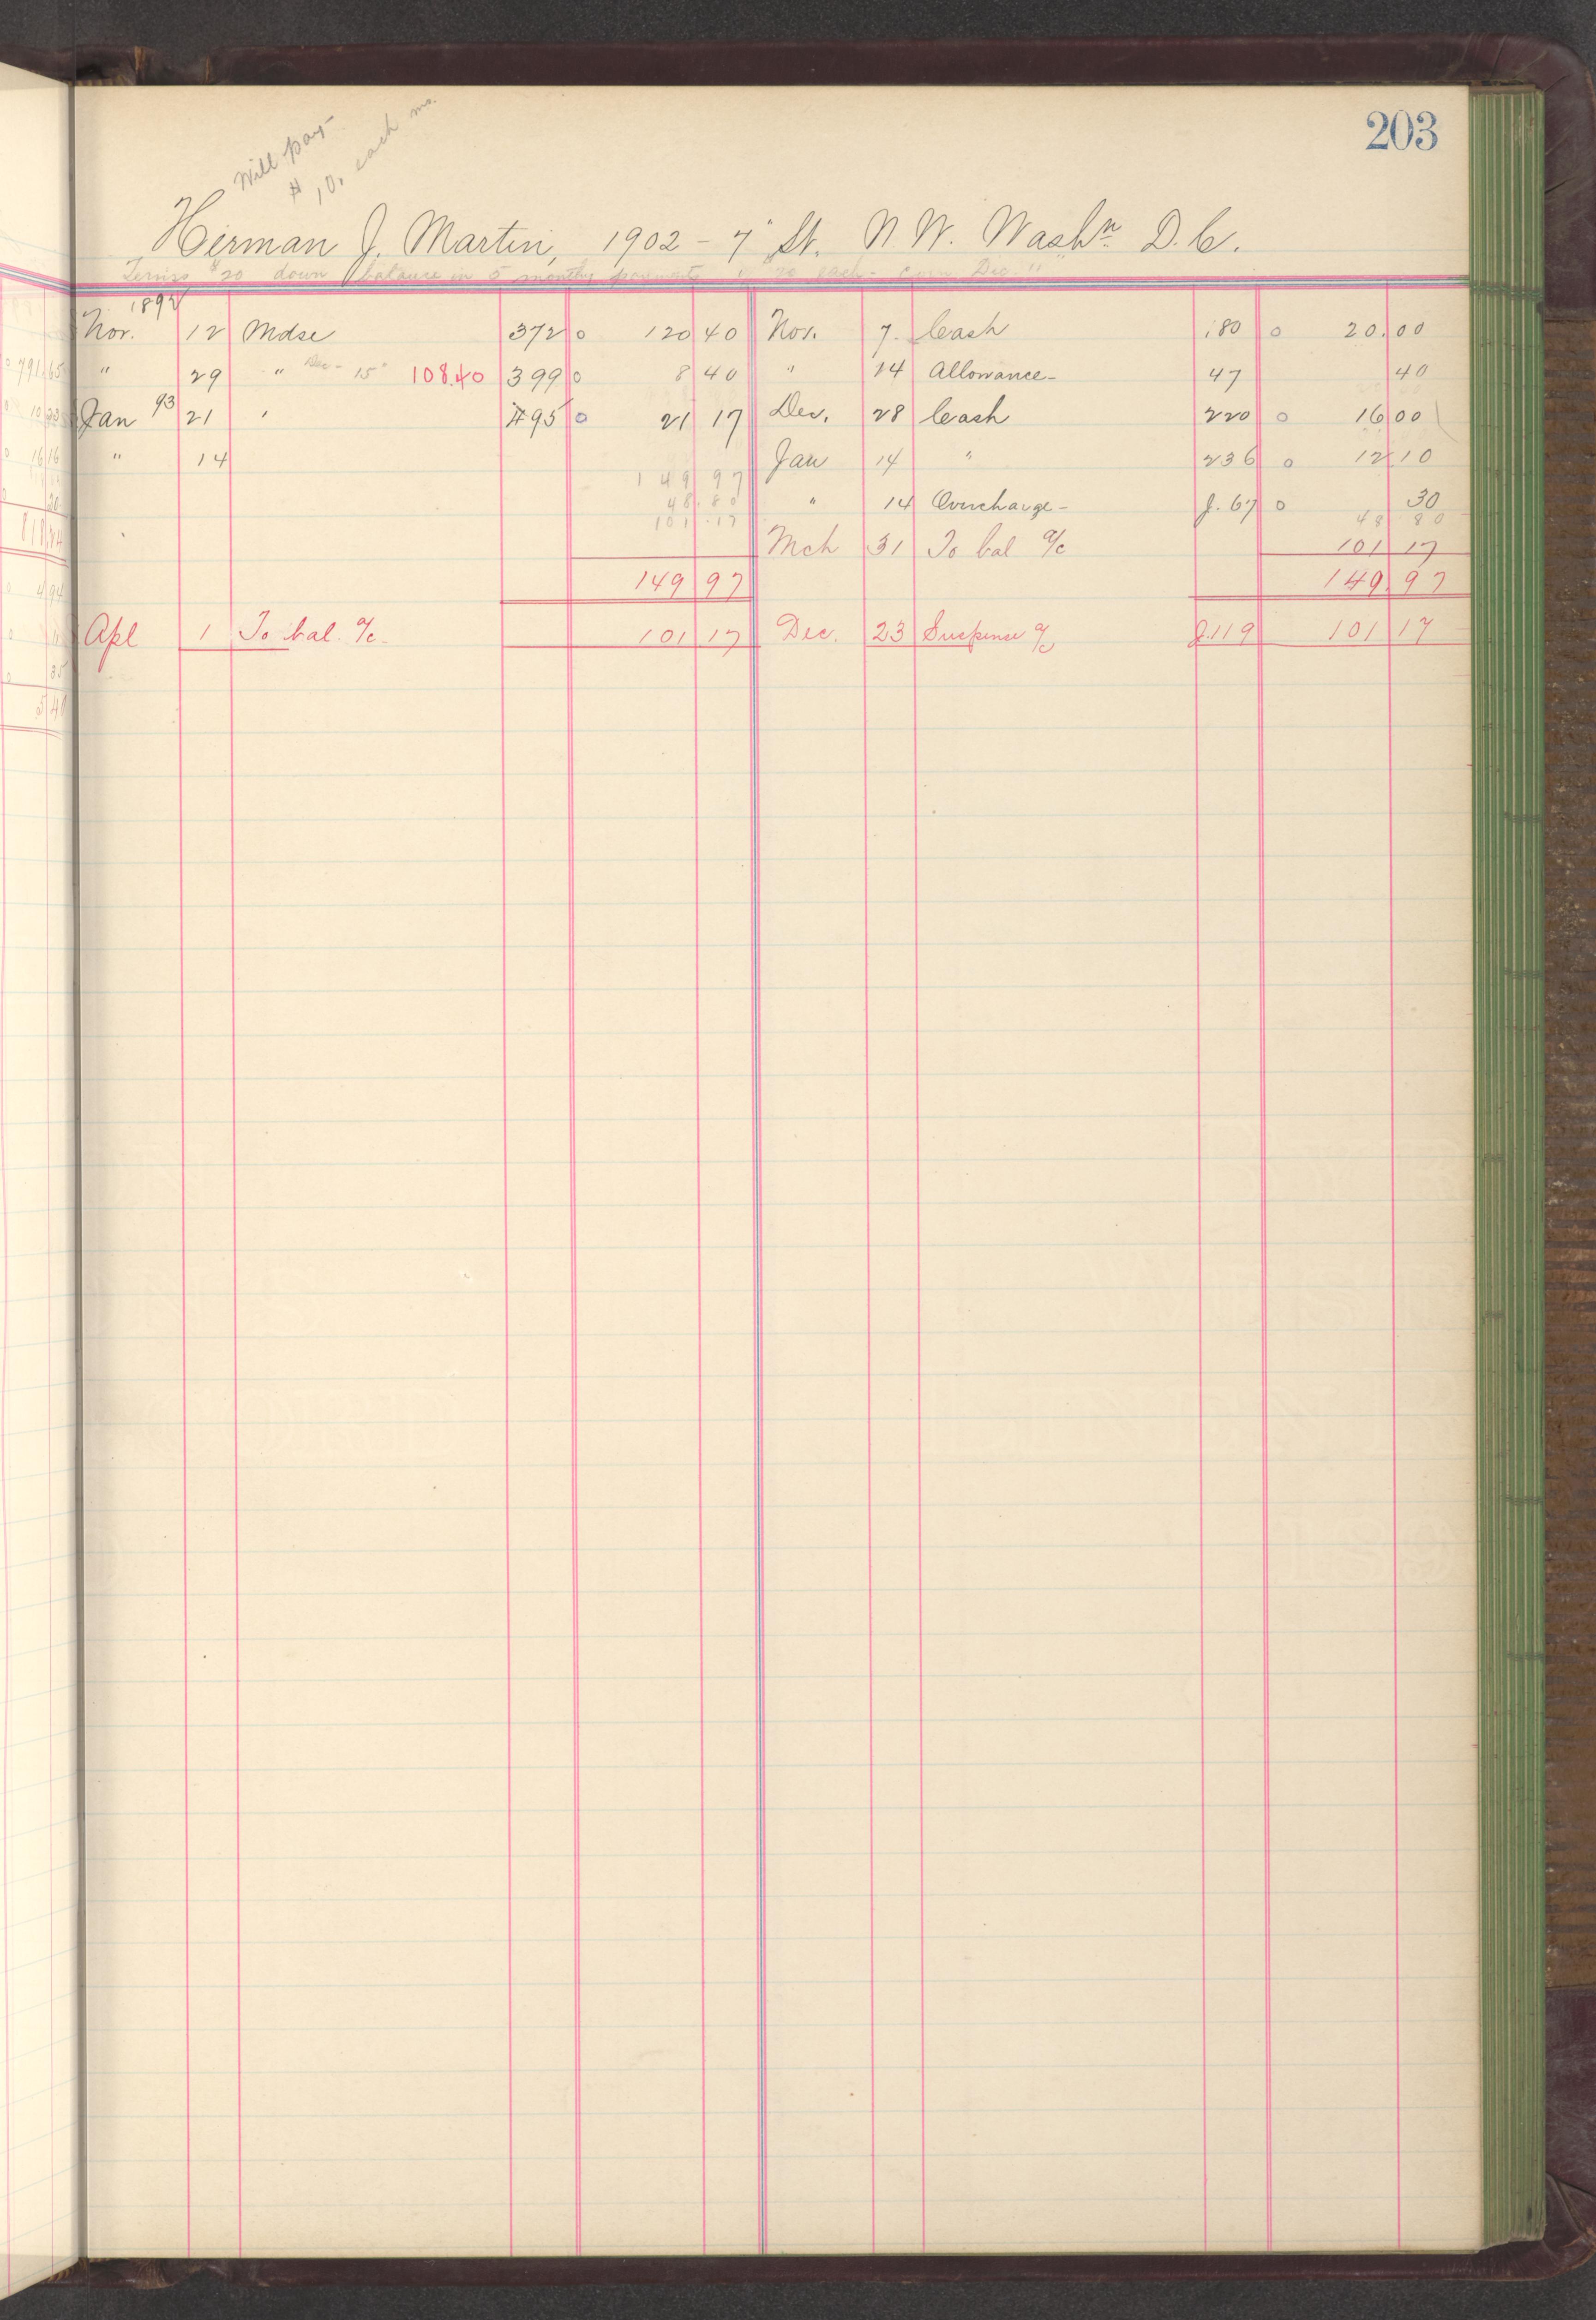 203
Will pay-
$10. each mo.
Herman J. Martin, 1902 - 7" St. N. W. Washn D. C.
Terms $20 down balance in 5 monthly payments of $20 each - Dec 11
1892
Nov. 12 Mdse 372 0 120 40 Nov. 7. Cash 180 0 20.00
" 29 " Dec - 15" 108.40 399 0 8 40 " 14 Allowance- 47 40
Jan 93 21 " 495 0 21 17 Dec. 28 Cash 220 0 16 00
" 14 Jan 14 " 236 0 12 10
149 97
48.80 " 14 Overcharge- J. 67 0 30
101.17 48 80
Mch 31 To bal a/c 101 17
149 97 149 97
Apl 1 To bal. a/c. 101 17 Dec. 23 Suspense a/c J.119 101 17
791.65
10 33
16 16
20
818.44
4 94
35
5 40